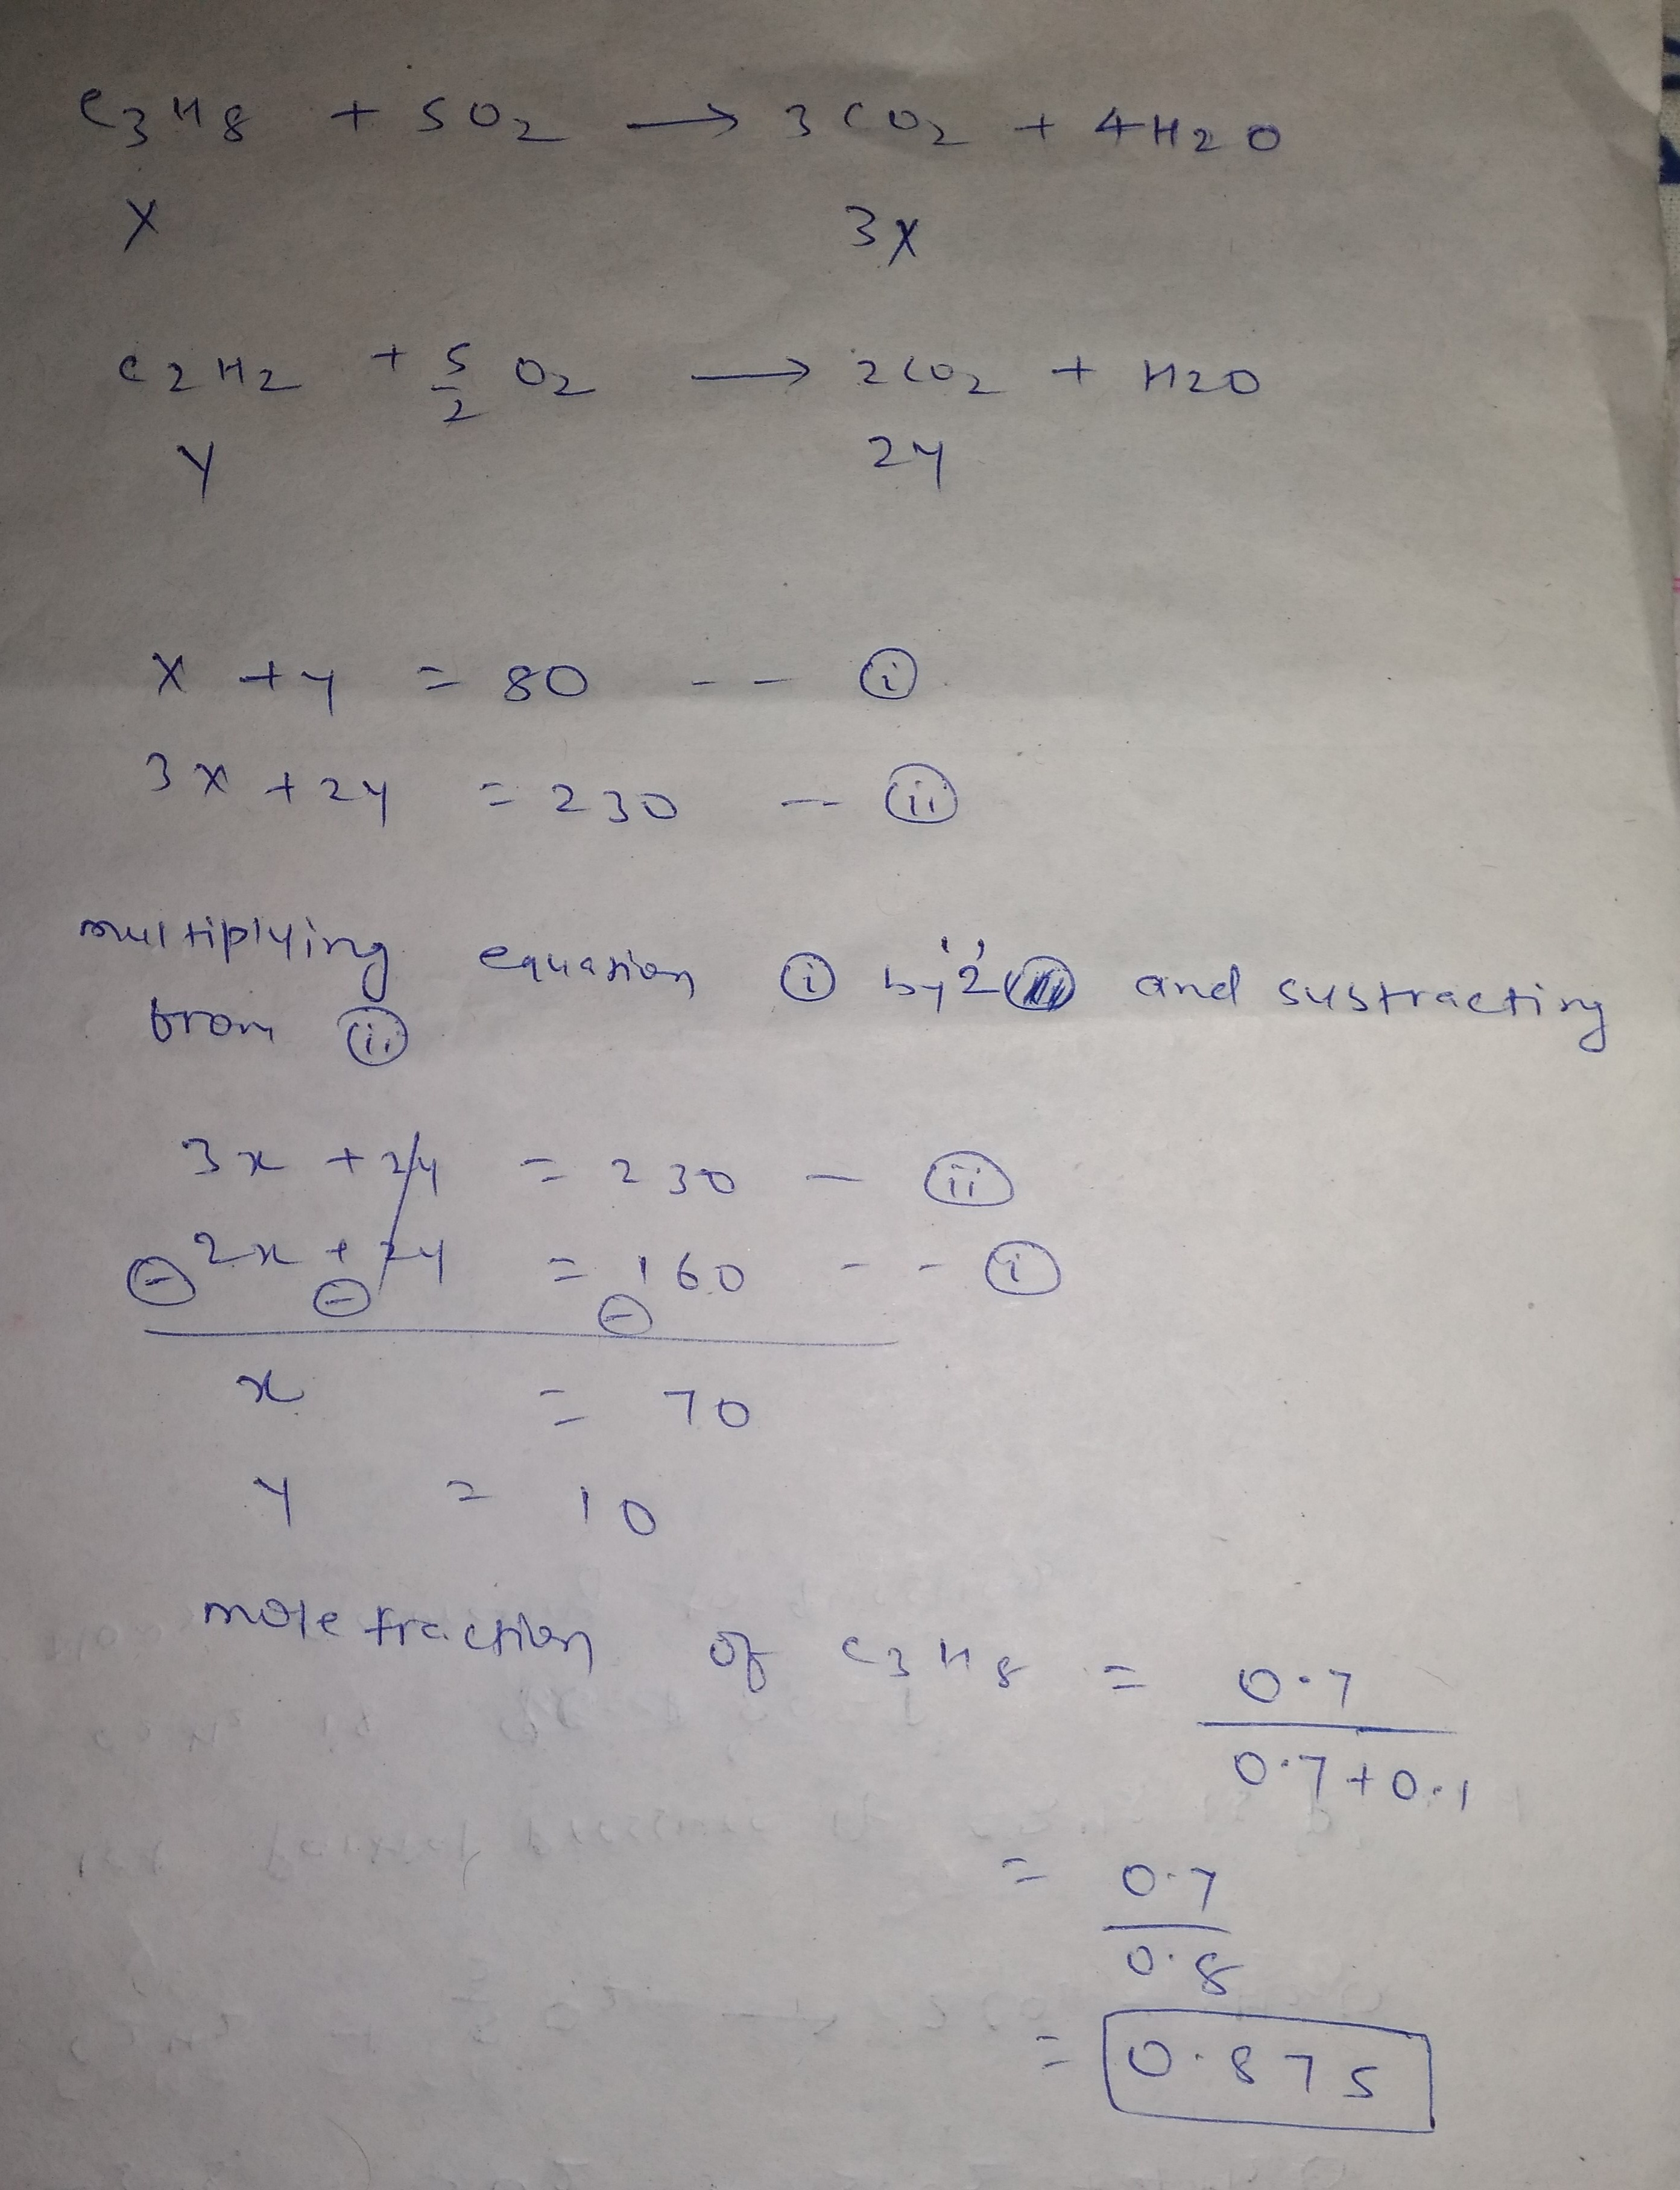 C3H8 + 5O2 → 3CO2 + 4H2O
X 3X
C2H2 + 5/2 O2 → 2CO2 + H2O
Y 2Y
X + Y = 80 -- (i)
3X + 2Y = 230 -- (ii)
multiplying equation (i) by '2' and substracting
from (ii)
3x + 2y = 230 - (ii)
2x + 2y = 160 -- (i)
(-) (-) (-)
x = 70
y = 10
mole fraction of C3H8 = 0.7
0.7+0.1
= 0.7
0.8
= 0.875